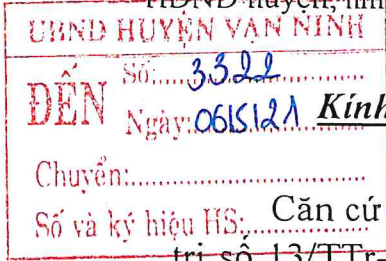 HĐND huyện,
UBND HUYỆN VẠN NINH
ĐẾN
Số:.....3322.............
Ngày:.06/5/21.......... Kính
Chuyển:.............................
Số và ký hiệu HS:.......... Căn cứ
trị số 13/TTr-